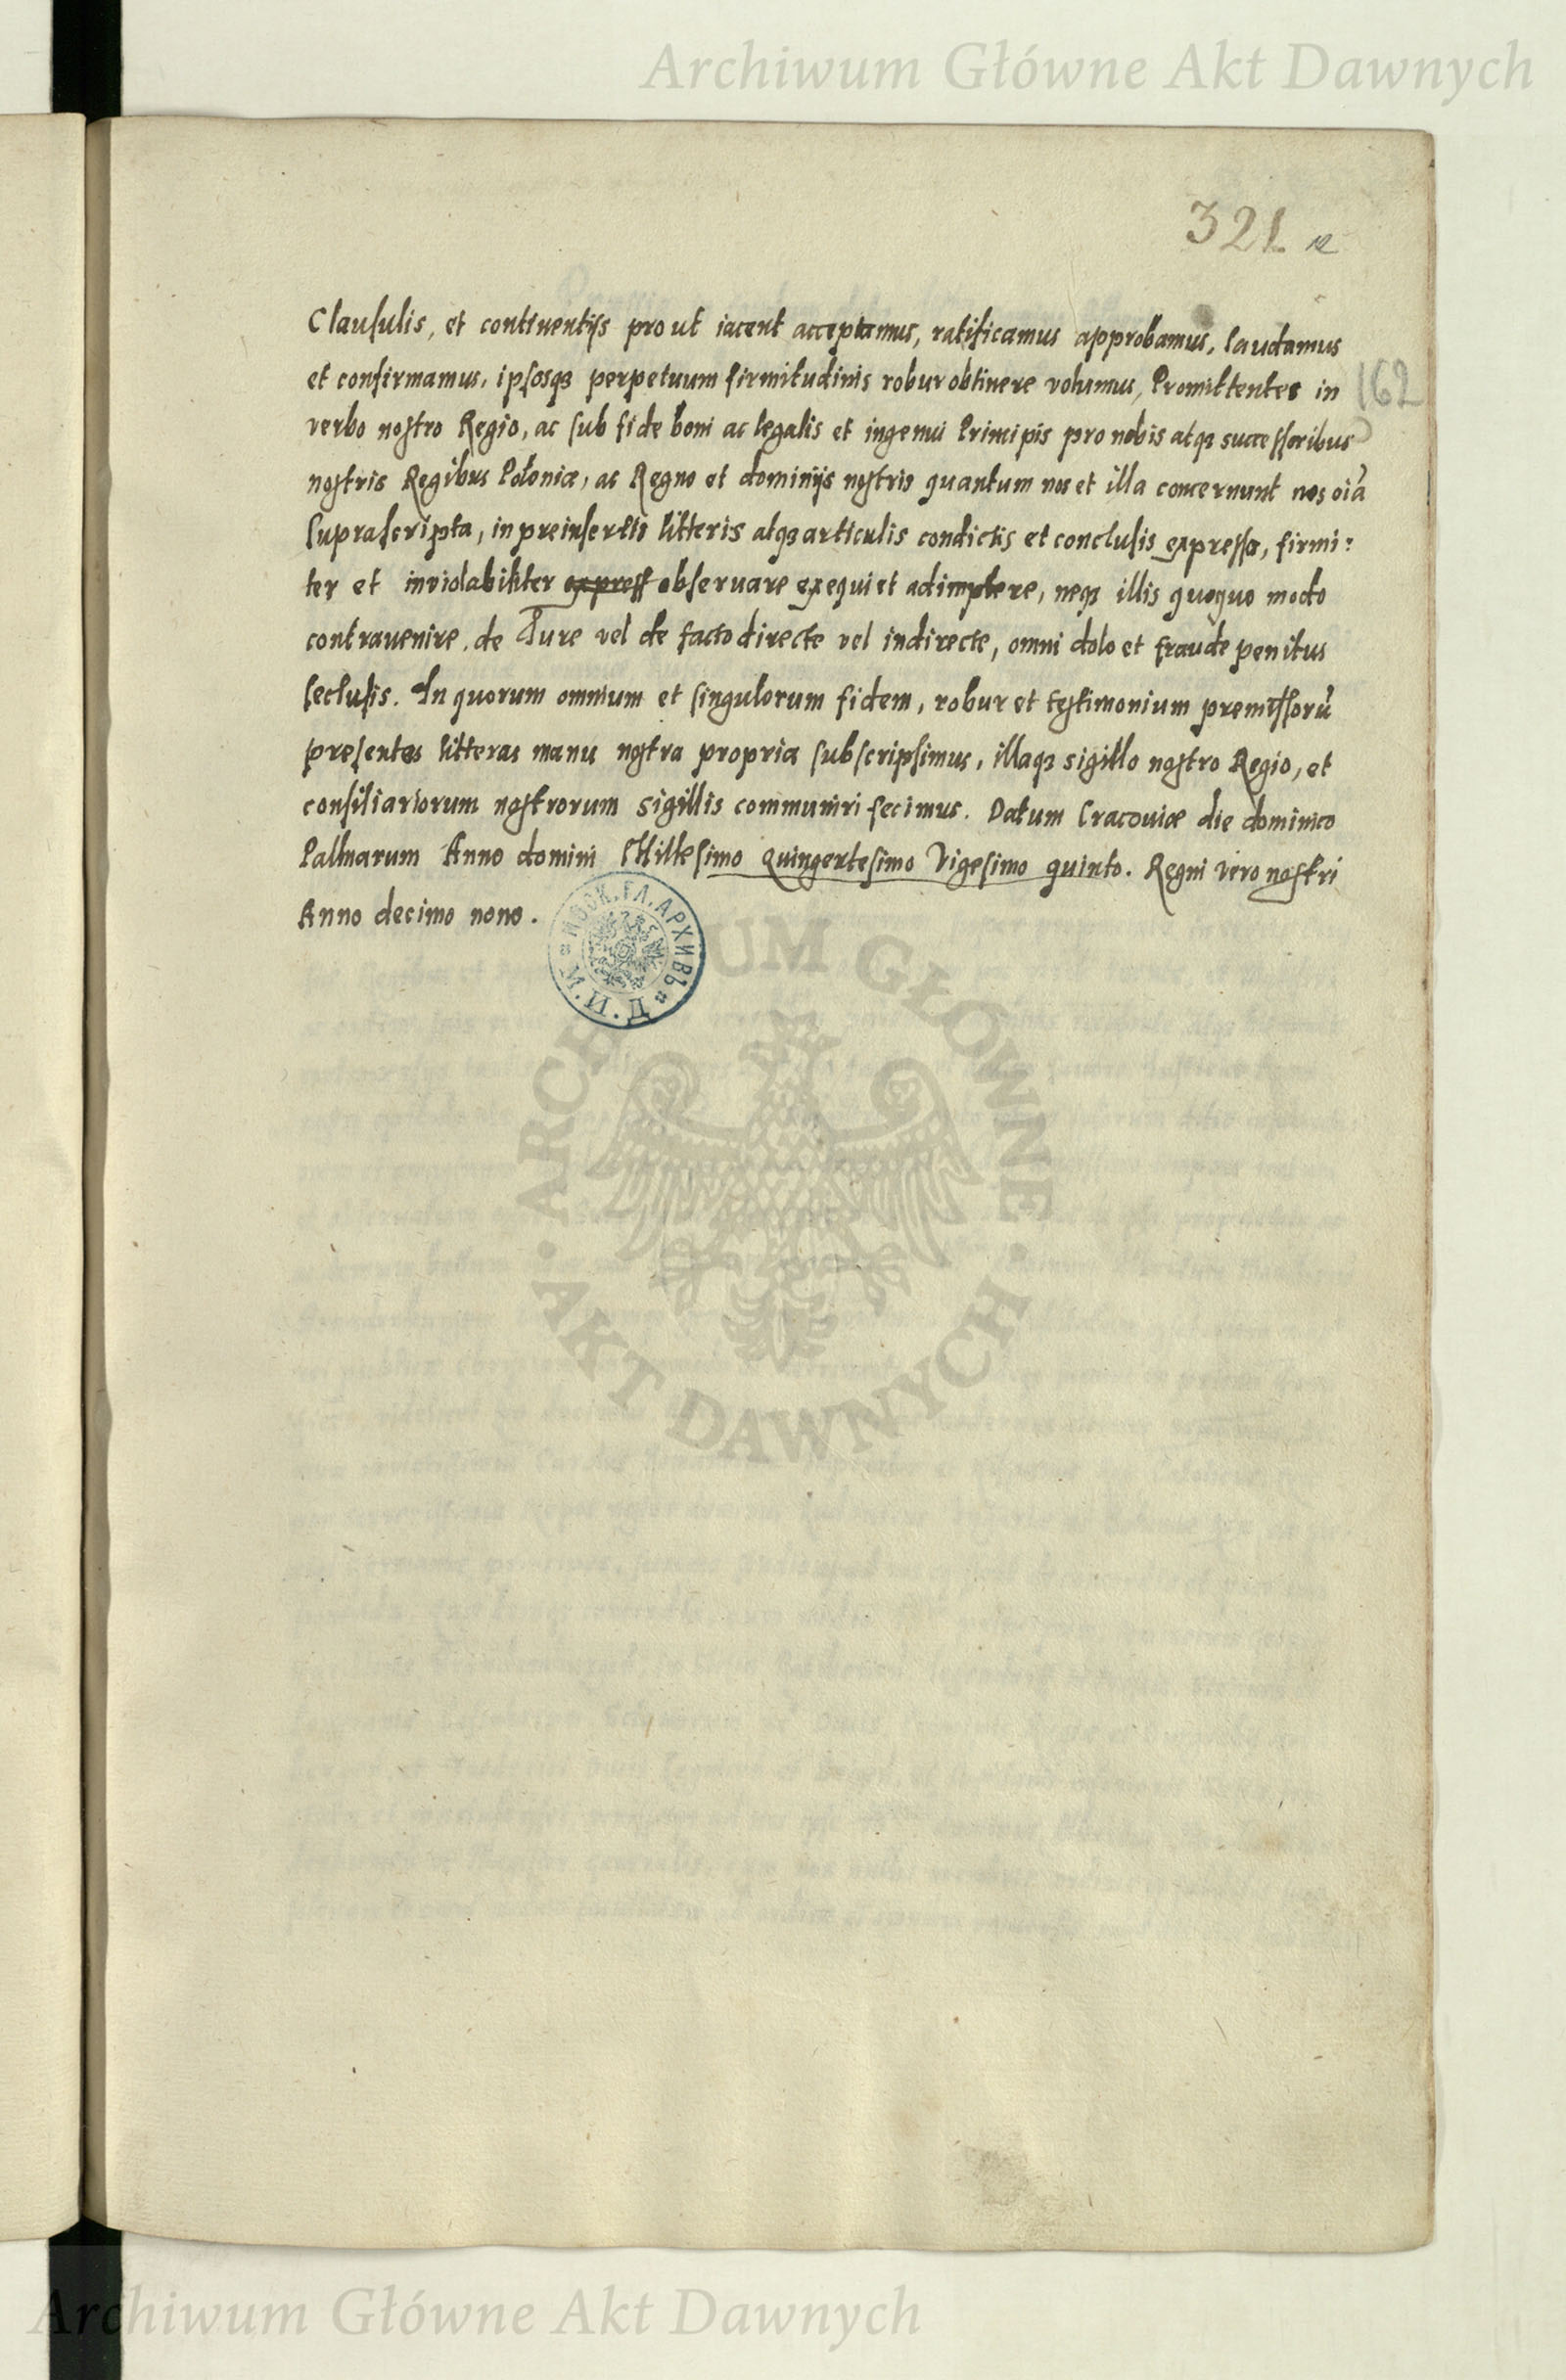 Archiwum Główne Akt Dawnych
321
Clausulis, et continentijs prout iacent acceptamus, ratificamus approbamus, laudamus
et confirmamus, ipsosq3 perpetuum firmitudinis robur obtinere volumus, Promittentes in
162
verbo nostro Regio, ac sub fide boni ac legalis et ingenui Principis pro nobis atq3 successoribus
nostris Regibus Poloniæ, ac Regno et dominijs nostris quantum nos et illa concernunt nos oīa
suprascripta, in preinsertis litteris atq3 articulis condictis et conclusis expressa, firmi:
ter et inviolabiliter express observare exequi et adimplere, neq3 illis quoquo modo
contravenire, de Jure vel de facto directe vel indirecte, omni dolo et fraude penitus
seclusis. In quorum omnium et singulorum fidem, robur et testimonium premissorū
presentes litteras manu nostra propria subscripsimus, illasq3 sigillo nostro Regio, et
consiliariorum nostrorum sigillis communiri fecimus. Datum Cracoviæ die dominico
Palmarum Anno domini Millesimo Quingentesimo Vigesimo quinto. Regni vero nostri
Anno decimo nono.
МОСК. ГЛ. АРХИВЪ М. И. Д.
ARCHIWUM GŁÓWNE
AKT DAWNYCH
Archiwum Główne Akt Dawnych